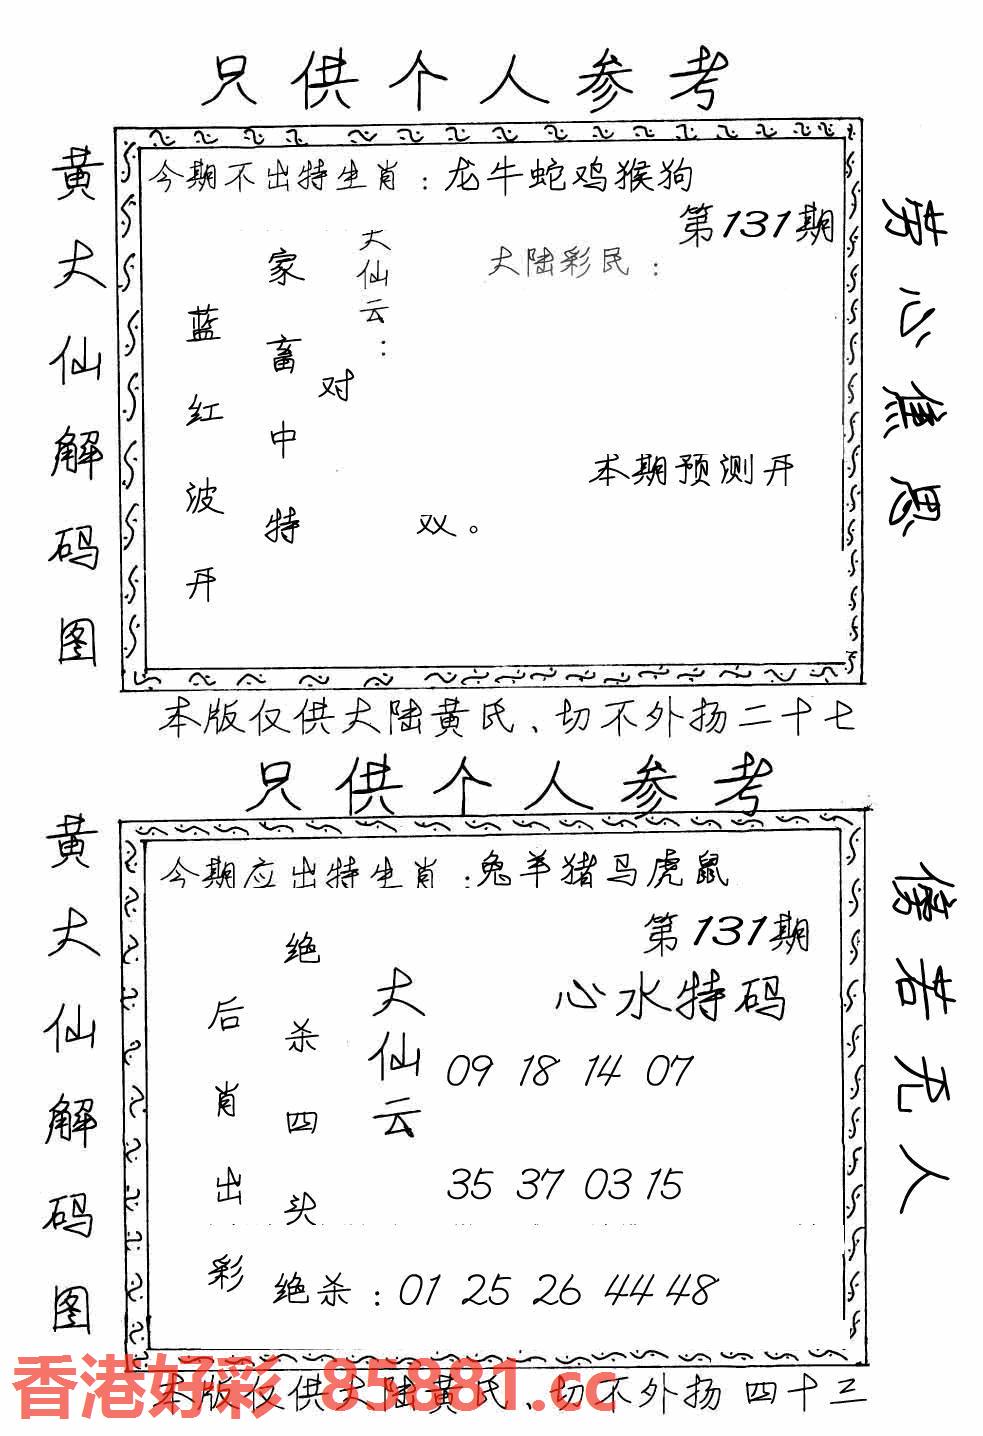 只供个人参考
黄大仙解码图
今期不出特生肖：龙牛蛇鸡猴狗
第131期
大陆彩民：
大仙云：
对
家畜中特
蓝红波开
双。
本期预测开
劳心焦思
本版仅供大陆黄氏、切不外扬二十七
只供个人参考
黄大仙解码图
今期应出特生肖：兔羊猪马虎鼠
第131期
心水特码
大仙云
绝杀四头
后肖出彩
09 18 14 07
35 37 03 15
绝杀：01 25 26 44 48
傍若无人
本版仅供大陆黄氏、切不外扬 四十三
香港好彩 85881.cc